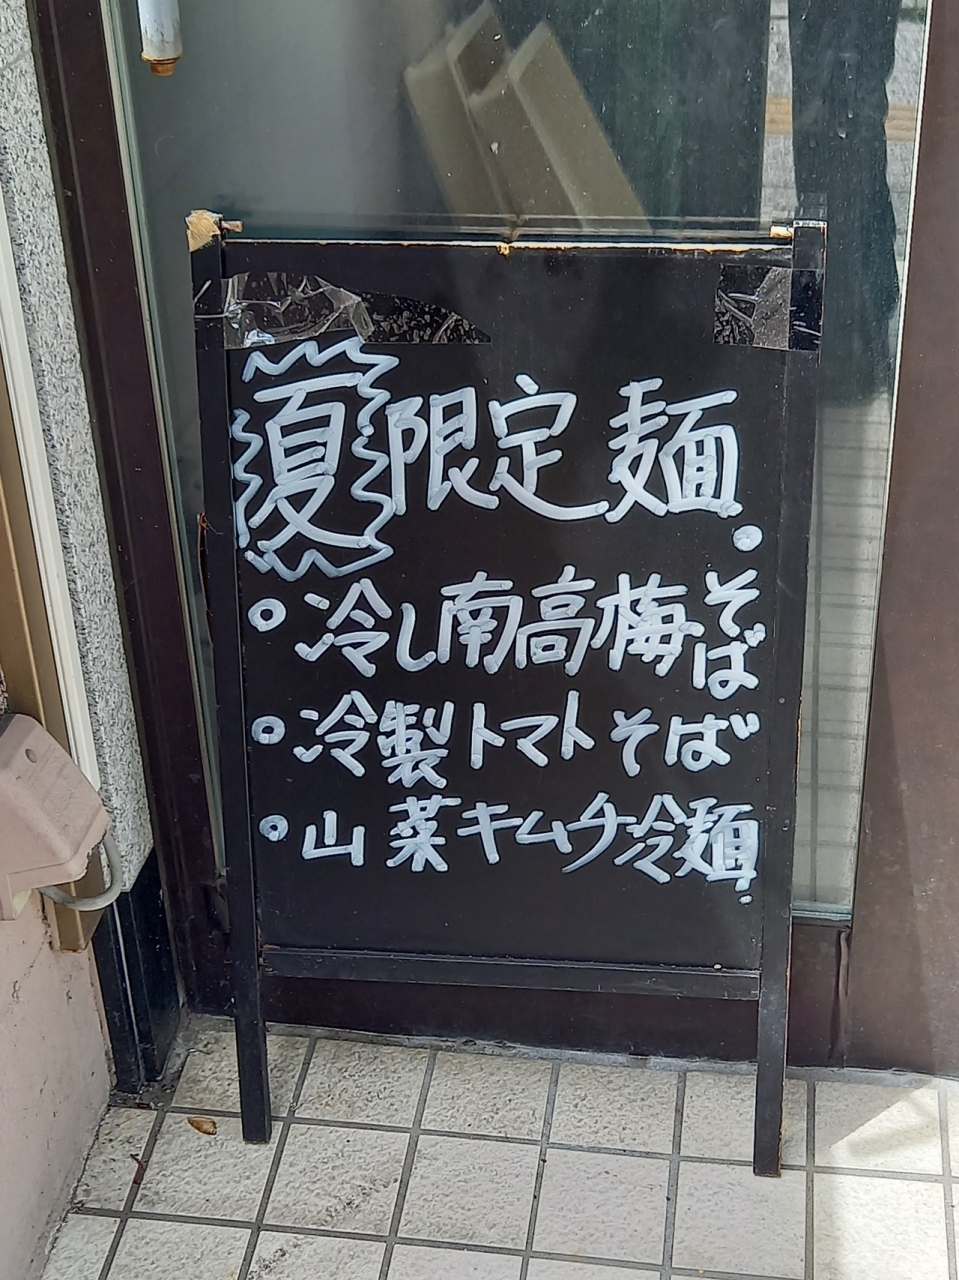 夏限定 麺。
○ 冷し南高梅そば
○ 冷製トマトそば
○ 山菜キムチ冷麺.